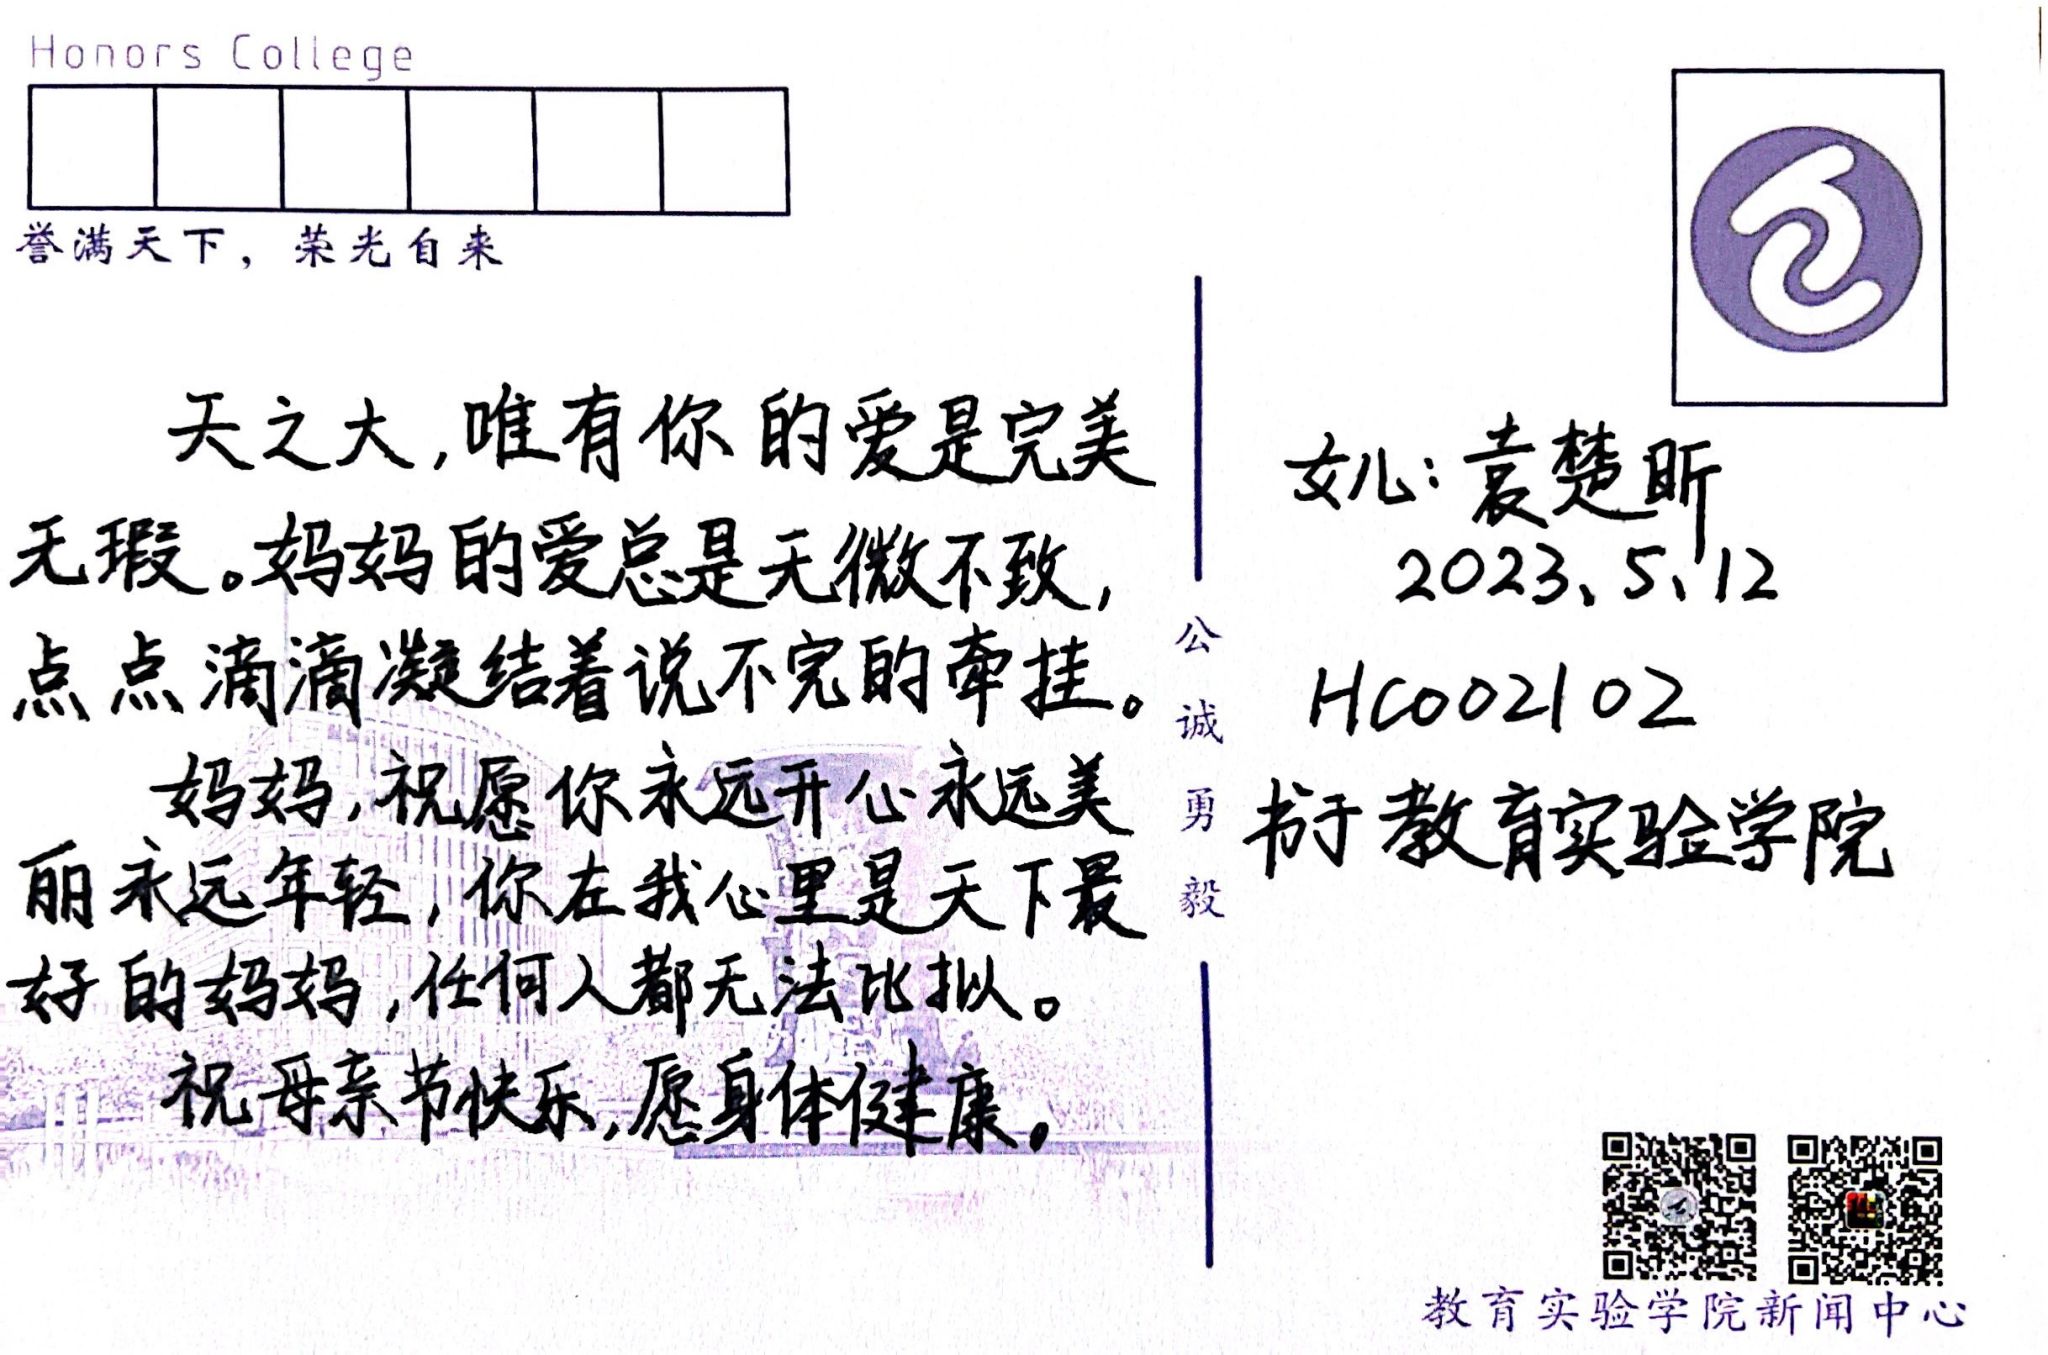 Honors College
誉满天下，荣光自来
天之大，唯有你的爱是完美
无瑕。妈妈的爱总是无微不致，
点点滴滴凝结着说不完的牵挂。
妈妈，祝愿你永远开心永远美
丽永远年轻，你在我心里是天下最
好的妈妈，任何人都无法比拟。
祝母亲节快乐，愿身体健康。
公
诚
勇
毅
女儿：袁楚昕
2023、5、12
HC002102
书于教育实验学院
教育实验学院新闻中心